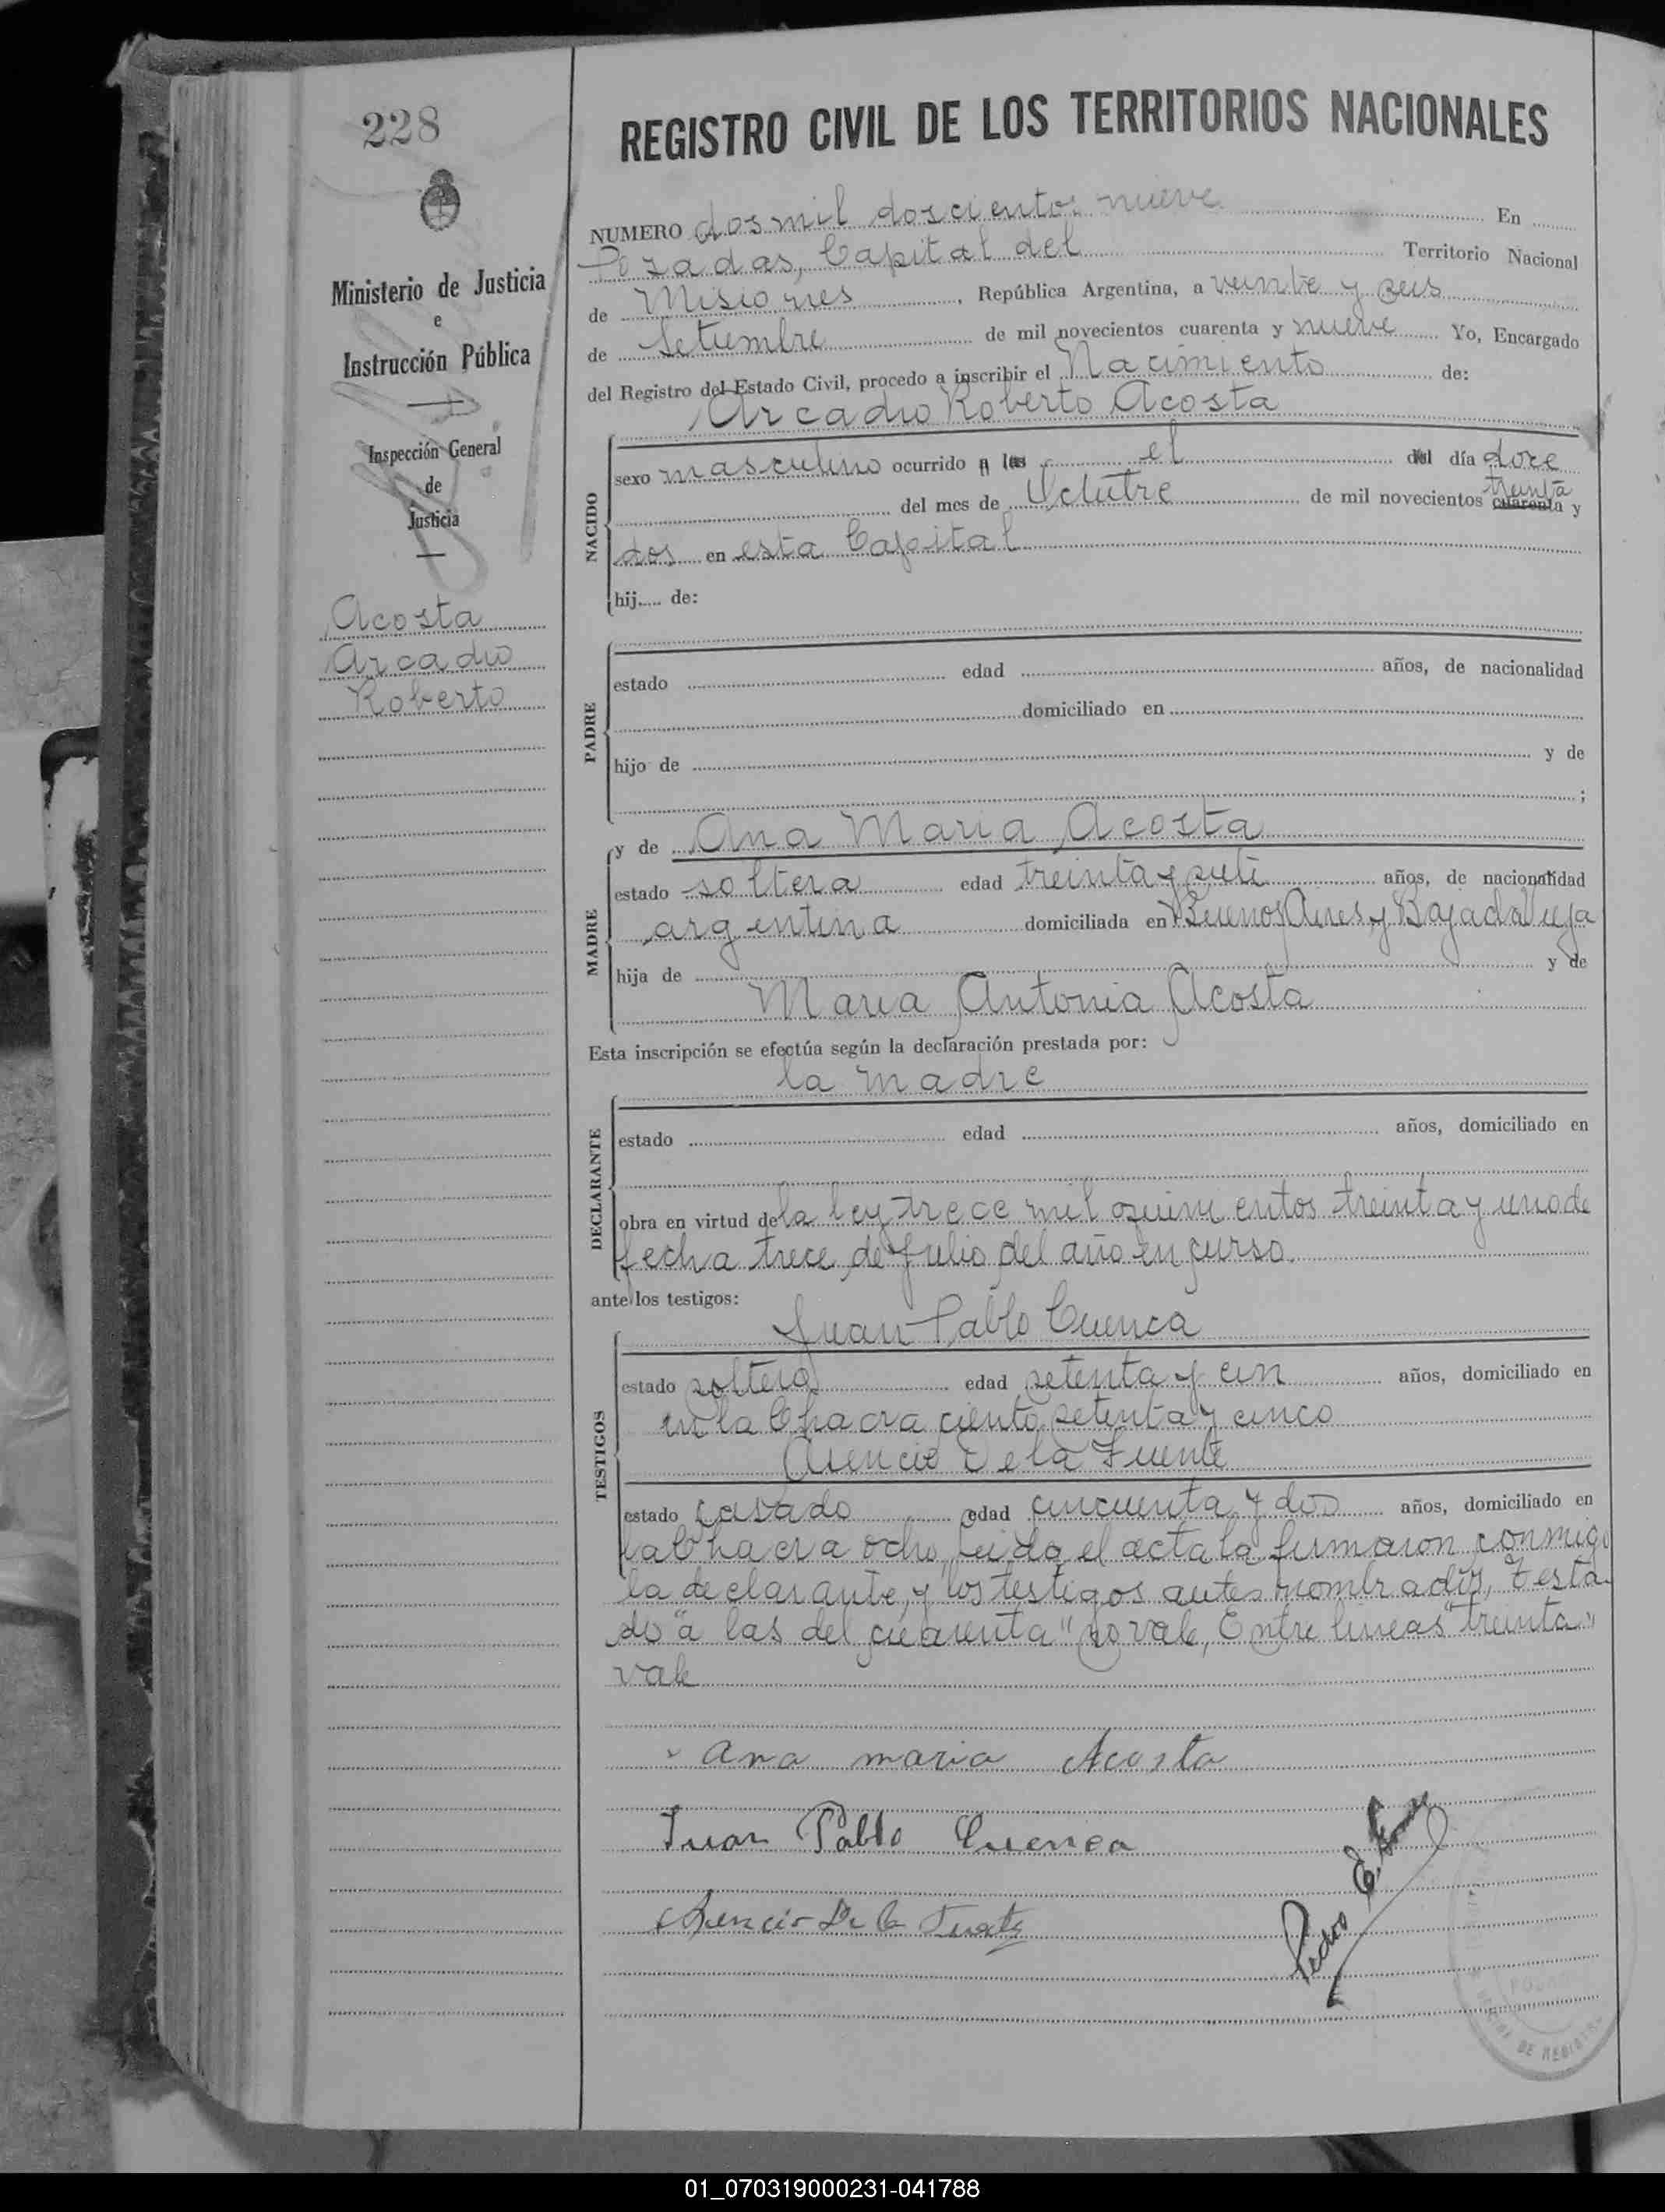 228
Ministerio de Justicia
e
Instrucción Pública
Inspección General
de
Justicia
Acosta
Arcadio
Roberto
REGISTRO CIVIL DE LOS TERRITORIOS NACIONALES
NUMERO dos mil doscientos nueve En
Posadas, Capital del Territorio Nacional
de Misiones, República Argentina, a veinte y seis
de Setiembre de mil novecientos cuarenta y nueve Yo, Encargado
del Registro del Estado Civil, procedo a inscribir el Nacimiento de:
Arcadio Roberto Acosta
NACIDO
sexo masculino ocurrido a las el del día doce
treinta
del mes de Octubre de mil novecientos cuarenta y
dos en esta Capital
hij..... de:
PADRE
estado edad años, de nacionalidad
domiciliado en
hijo de y de
;
MADRE
y de Ana Maria Acosta
estado soltera edad treinta y siete años, de nacionalidad
argentina domiciliada en Buenos Aires y Bajada Vieja
hija de y de
Maria Antonia Acosta
Esta inscripción se efectúa según la declaración prestada por:
la madre
DECLARANTE
estado edad años, domiciliado en
obra en virtud de la ley trece mil quinientos treinta y uno de
fecha trece de Julio del año en curso.
ante los testigos:
Juan Pablo Cuenca
TESTIGOS
estado soltero edad setenta y un años, domiciliado en
en la Chacra ciento setenta y cinco
Asencio De la Fuente
estado casado edad cincuenta y dos años, domiciliado en
la Chacra ocho, leida el acta la firmaron conmigo
la declarante, y los testigos antes nombrados, Testa
do "a las del cuarenta" no vale, Entre lineas "treinta"
vale
Ana maria Acosta
Juan Pablo Cuenca
Asencio De la Fuente
Pedro E.
DE REGISTRO
01_070319000231-041788